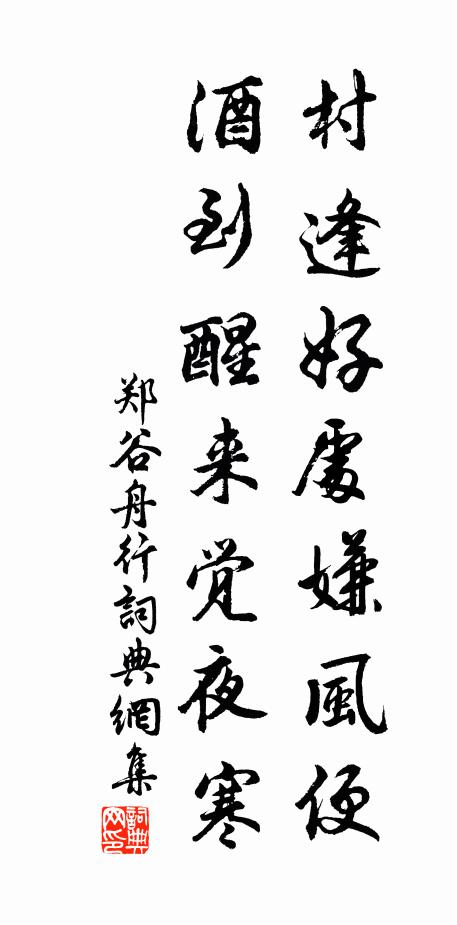 村逢好處嫌風便
酒到醒来觉夜寒
郑谷舟行詞典網集
詞典网印